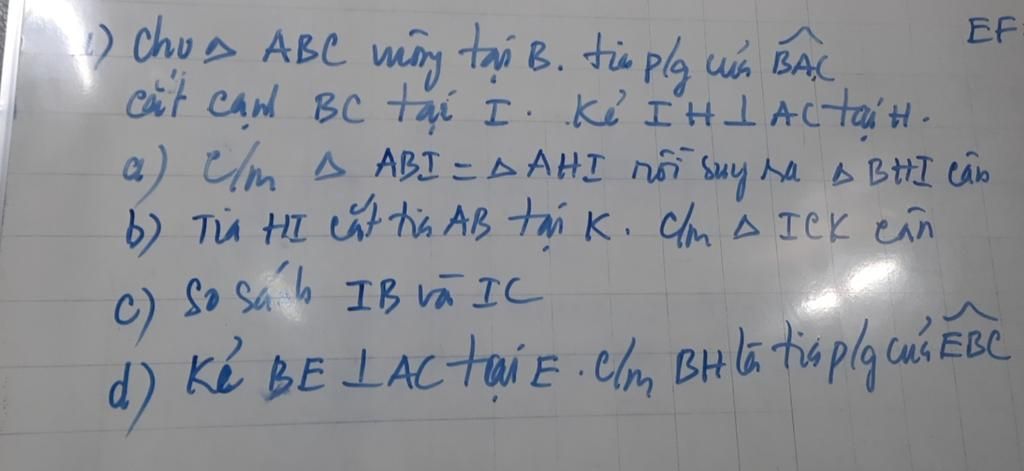 1) Cho △ ABC vuông tại B. tia p/g của BAC
EF
cắt cạnh BC tại I. Kẻ IH ⊥ AC tại H.
a) C/m △ ABI = △ AHI rồi suy ra △ BHI cân
b) Tia HI cắt tia AB tại K. C/m △ ICK cân
c) So sánh IB và IC
d) Kẻ BE ⊥ AC tại E. C/m BH là tia p/g của EBC